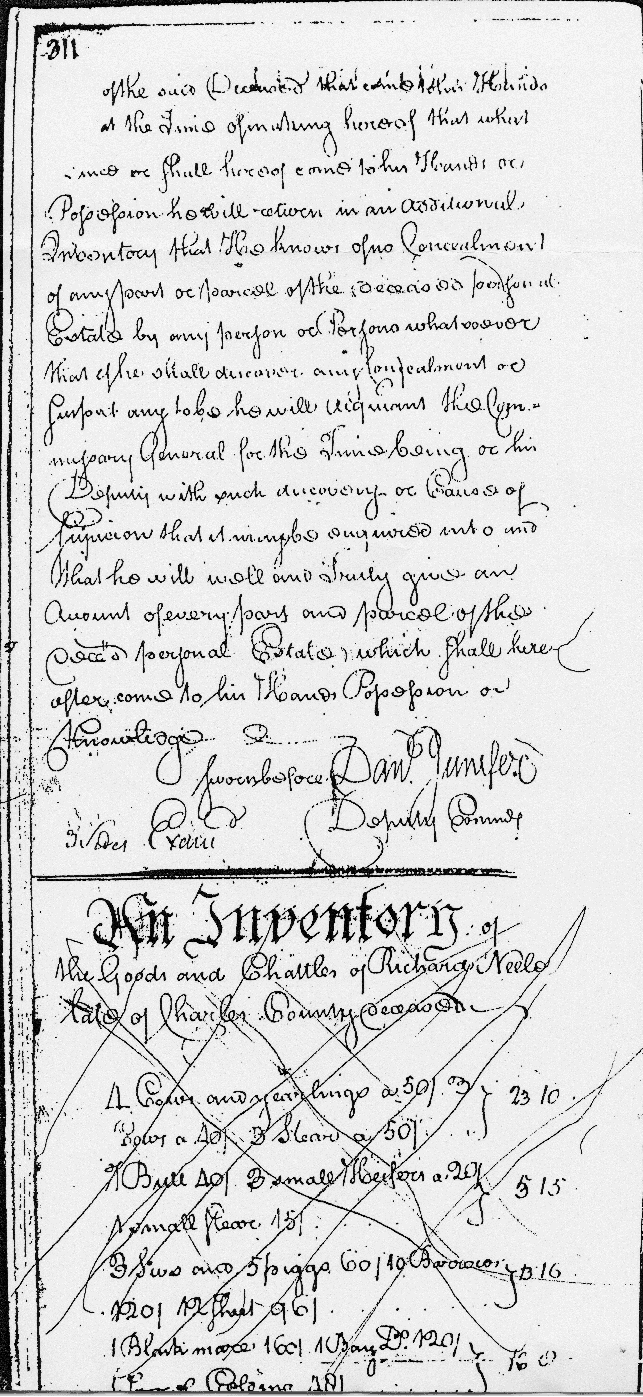 311
of the said Deceased that came to his Hands
at the Time of making hereof that what
since or shall hereof come to his Hands or
Possession he will return in an additional
Inventory that He knows of no Concealment
of any part or parcel of the deceased personal
Estate by any person or Persons whatsoever
that if he shall discover any Concealment or
suspect any to be he will acquaint the Com=
missary General for the Time being or his
Deputy with such discovery or Cause of
suspicion that it may be enquired into and
that he will well and Truly give an
Account of every part and parcel of the
Decd personal Estate which shall here
after come to his Hands Possession or
Knowledge
sworn before Danl Jenifer
3 sides Exam d Deputy Commry
An Inventory of
the Goods and Chattles of Richard Neele
late of Charles County deceased
4 Cows and yearlings a 50/ 3 } 23 10
Cows a 40/ 3 Stear a 50/
1 Bull 40/ 3 small Heifers a 20/ } 5 15
1 small stear 15/
3 Sows and 5 piggs 60/ 10 Barrows } 16
120/ 12 shoat 96/
1 Black mare 160/ 1 Bay Do 120/ } 16 0
Colding